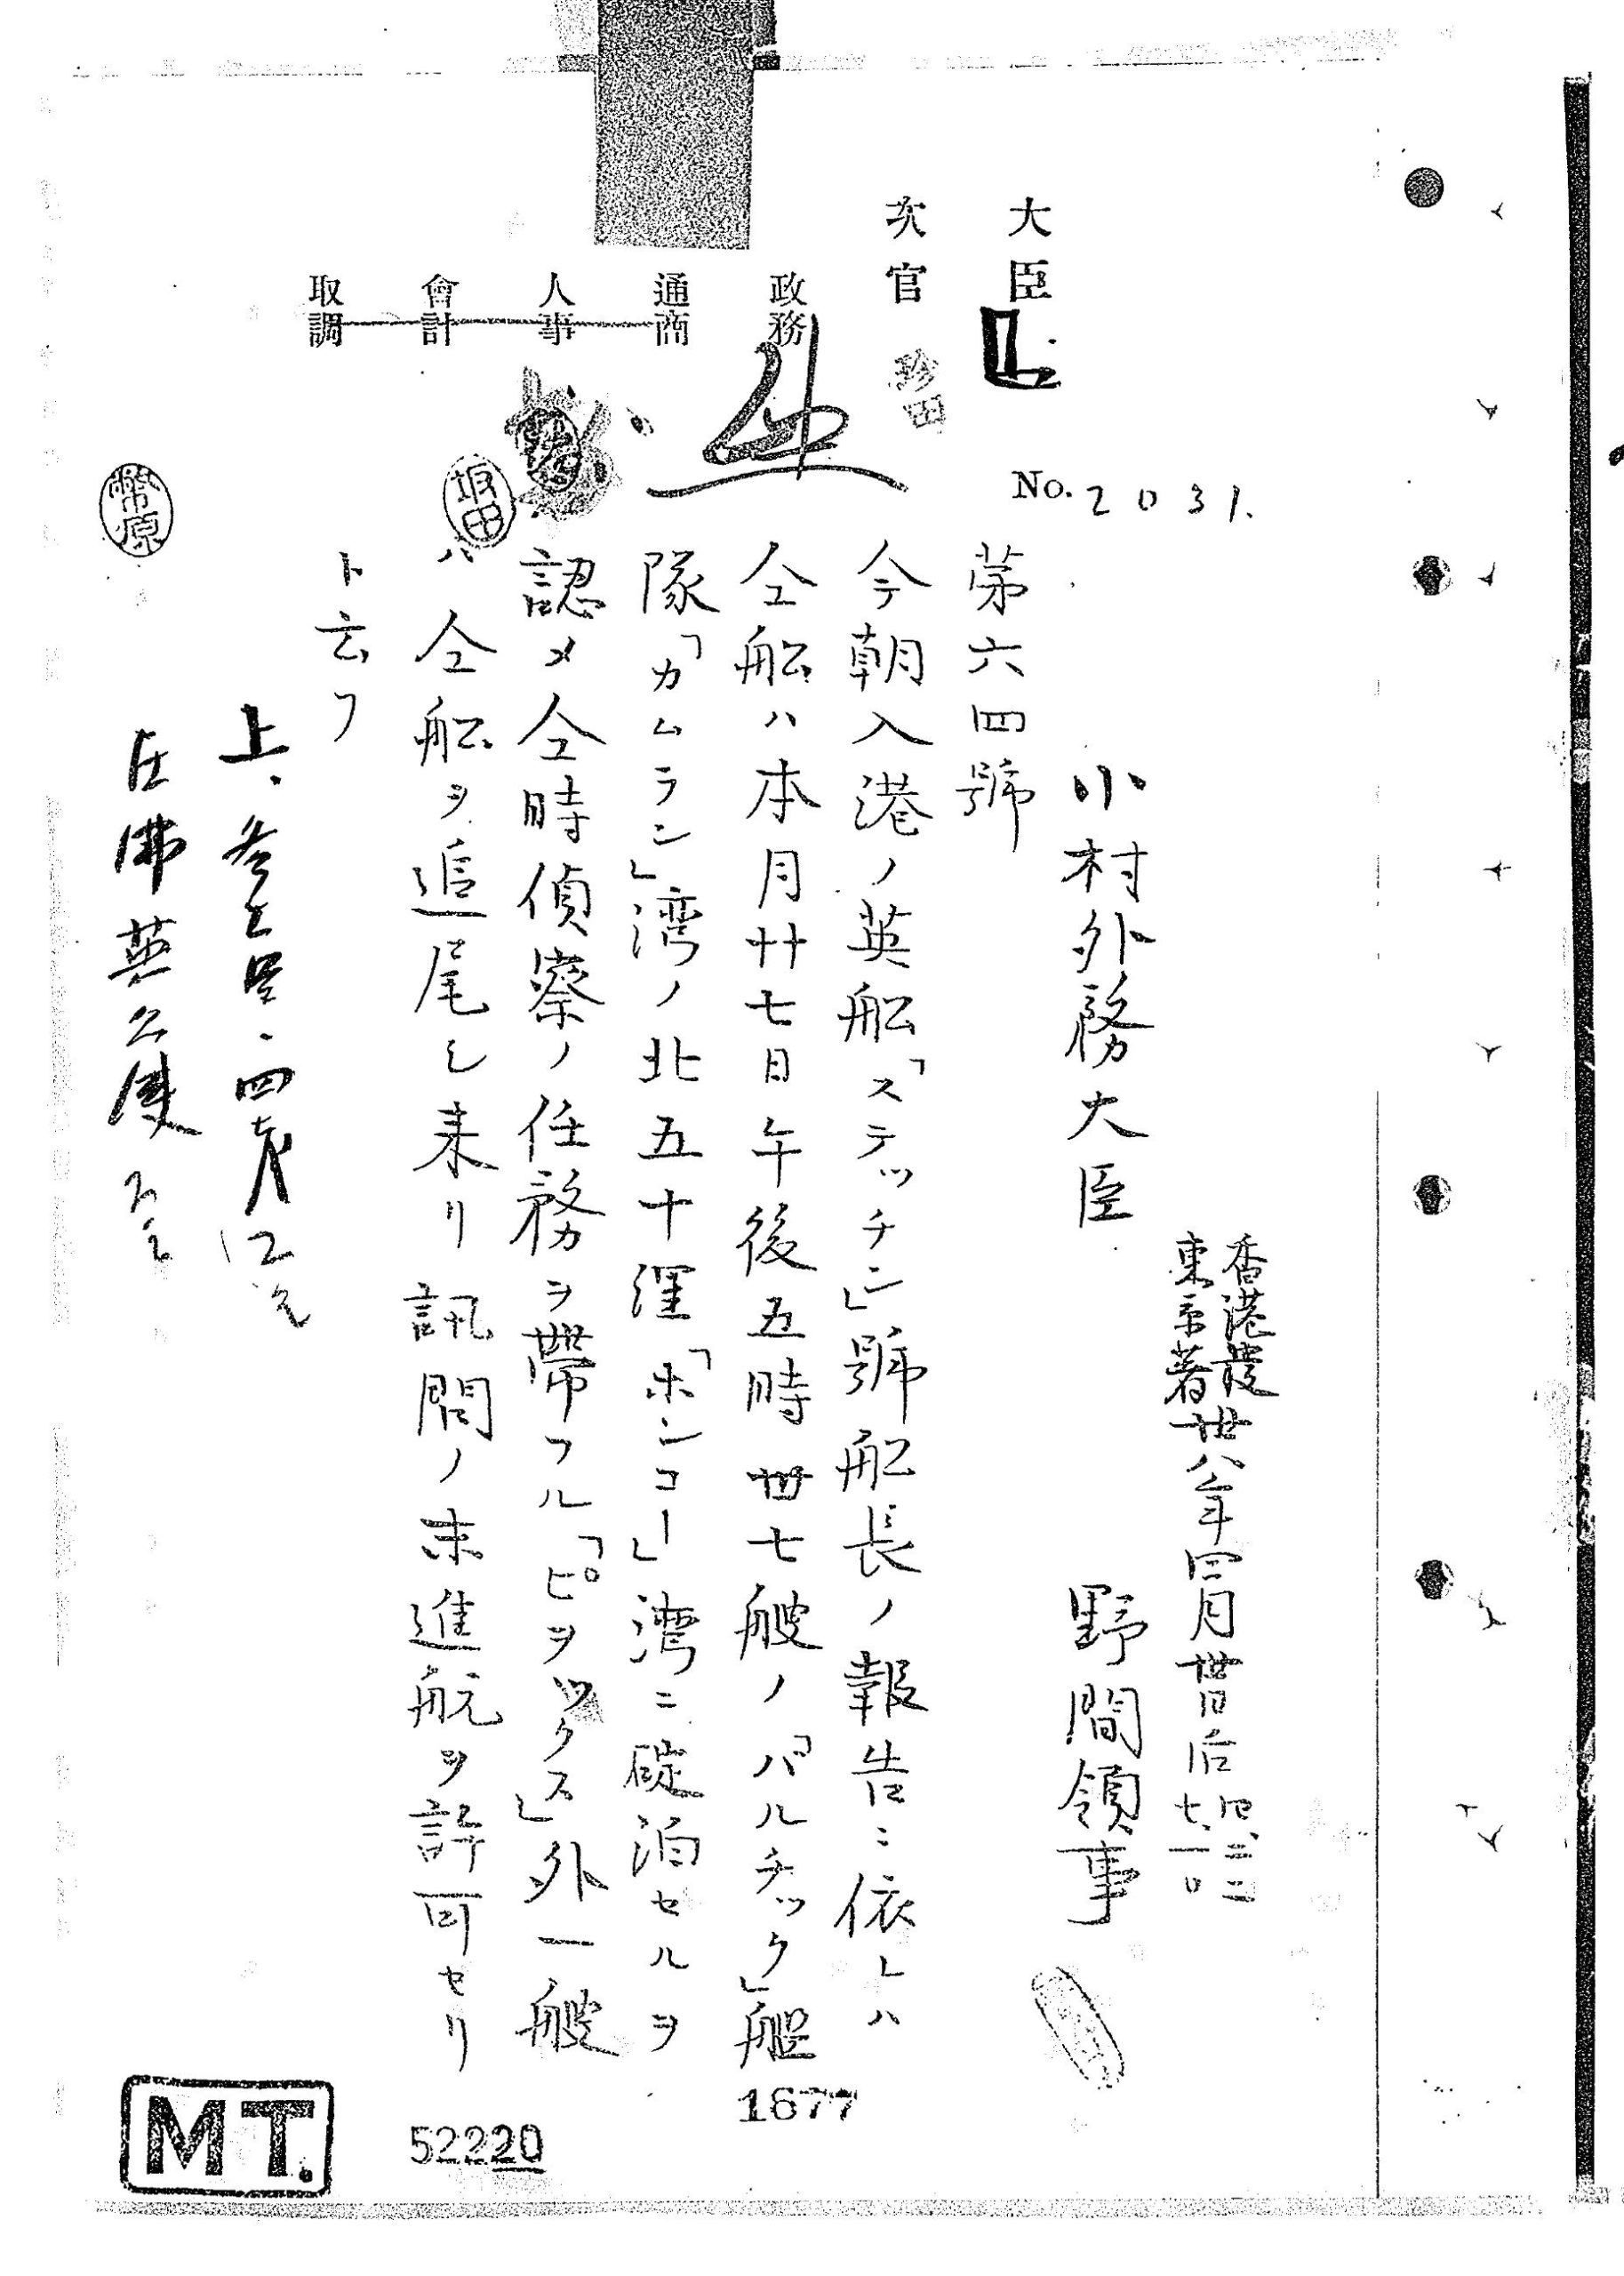 大臣
次官
珍田
政務
通商
人事
會計
取調
No. 2031.
香港發
東京著
卅八年四月卅日后
四、三二
七、一〇
小村外務大臣
野間領事
第六四號
今朝入港ノ英舩「ステッチン」號舩長ノ報告ニ依レハ
仝舩ハ本月廿七日午後五時卅七艘ノ「バルチック」艦
隊「カムラン」湾ノ北五十浬「ホンコー」湾ニ碇泊セルヲ
認メ仝時偵察ノ任務ヲ帶フル「ピヲックス」外一艘
ハ仝舩ヲ追尾シ来リ訊問ノ末進航ヲ許可セリ
ト云フ
上、
在佛英公使
坂田
幣原
1677
52220
MT.